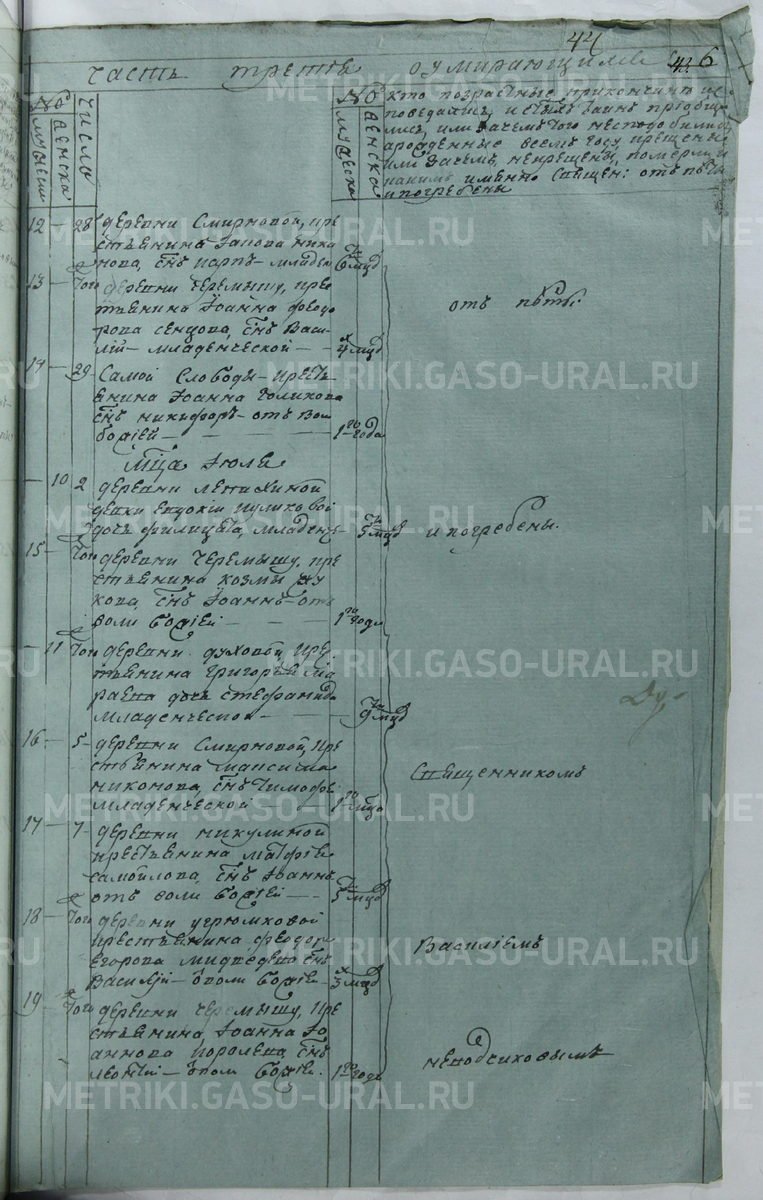 44
часть третıя о умирающихъ 6
№ мужеска
женска
число
№ мужеска
женска
Кто погребенные при кончинѣ ис
поведались, и святыхъ таинъ приобщи
лись, или зачемъ того несподобились
а рожденные всемъ году крещены
или зачемъ некрещены, померли, и
какимъ имянно священ: отъ пѣты
и погребены
12 28 деревни Смирновой, кре
стьянина никонова, снъ карпъ младен 6 мцд
13 того деревни Черемышу, крес
тьянина Iоанна Феодо
рова сенцова, снъ Васи
лій младенческой 4 мцд
отъ пѣты.
14 29 Самой Слободы крестья
янина Iоанна голикова
снъ никифоръ отъ воли
божіей 1го года
Мца Iюля
10 2 деревни лепихиной
девки Евдокіи куликовой
дочь филицата, младенч 5 мцд
и погребены.
15 того деревни Черемышу, кре
стьянина козмы жу
кова, снъ Iоаннъ отъ
воли божіей 1го года
11 того деревни духовой, крес
тьянина григорья
дочь стефанида
младенческой 9 мцд
16 5 деревни Смирновой, кре
стьянина максима
никонова, снъ тимофей
младенческой 1го мца
Священникомъ
17 7 деревни микулиной
крестьянина матфея
самойлова, снъ Iоаннъ
отъ воли божіей 5 мцд
18 того деревни угрюмковой
крестьянина феодора
Егорова медведева снъ
Василій отъ воли божіей 3 мцд
Василіемъ
19 того деревни Черемышу, кре
стьянина, Iоанна Iо
аннова королева, снъ
леонтій отъ воли божіей. 1го года
METRIKI.GASO-URAL.RU